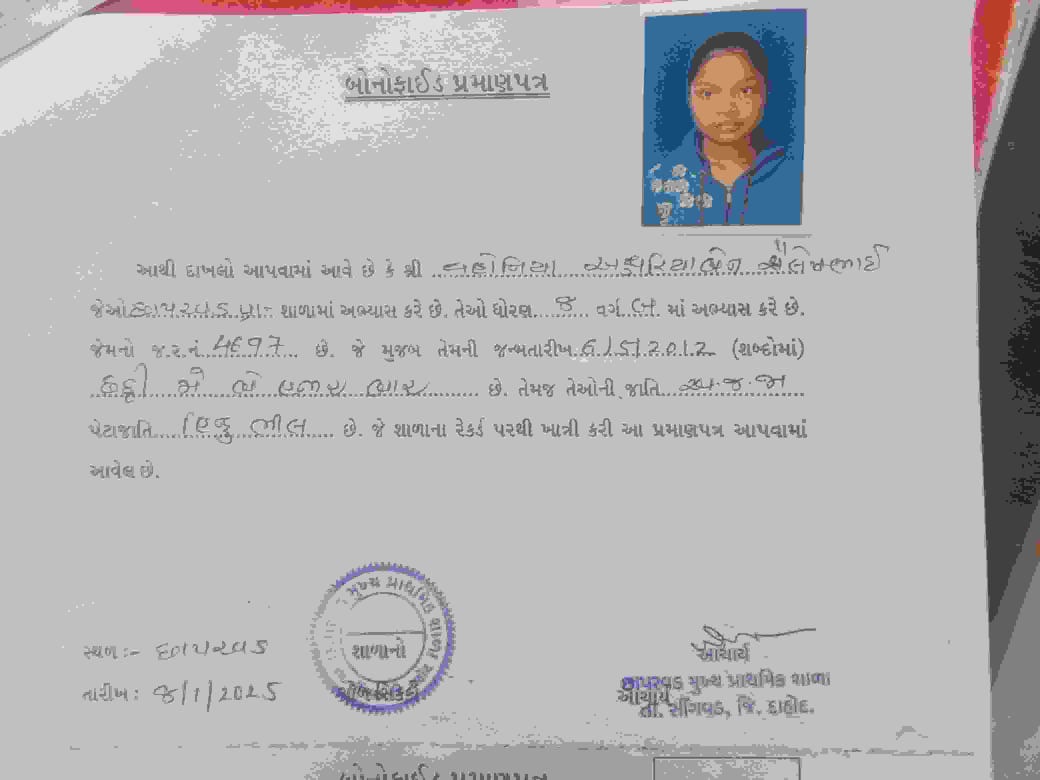 બોનોફાઈડ પ્રમાણપત્ર
આથી દાખલો આપવામાં આવે છે કે શ્રી
જેઓ છાપરવડ પ્રા- શાળામાં અભ્યાસ કરે છે. તેઓ ધોરણ 8 વર્ગ બ માં અભ્યાસ કરે છે.
જેમનો જ.ર.નં. 4697 છે. જે મુજબ તેમની જન્મતારીખ 6/5/2012 (શબ્દોમાં)
છઠ્ઠી મે બે હજાર બાર છે. તેમજ તેઓની જાતિ અ.જ.જા
પેટાજાતિ હિન્દુ ભીલ છે. જે શાળાના રેકર્ડ પરથી ખાત્રી કરી આ પ્રમાણપત્ર આપવામાં
આવેલ છે.
મુખ્ય પ્રાથમિક શાળા
શાળાનો
ગોળ સિક્કો
સ્થળ :- છાપરવડ
તારીખ : 8/1/2025
આચાર્ય
છાપરવડ મુખ્ય પ્રાથમિક શાળા
આચાર્ય
તા. સીંગવડ, જિ. દાહોદ.
બોનોફાઈડ પ્રમાણપત્ર